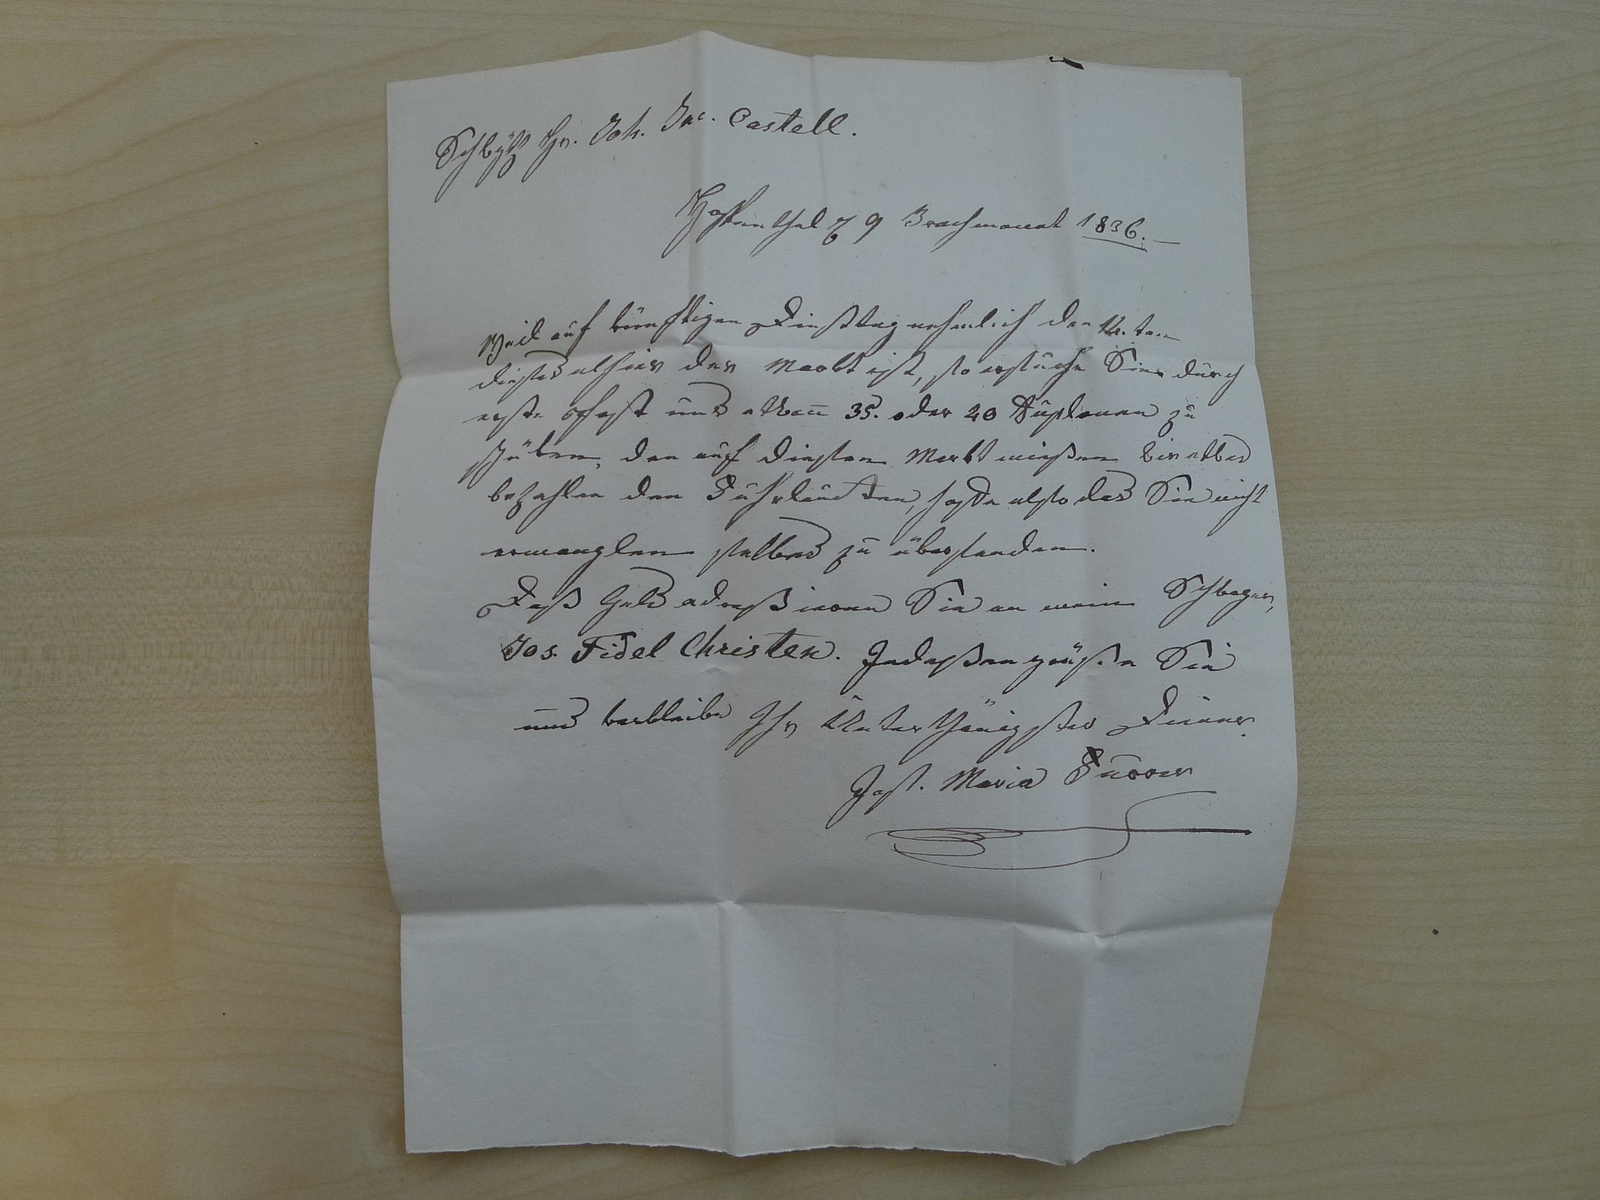 Schwytz Hr. Joh. Jac. Castell.
Hospenthal d 9 Brachmonat 1836.
Weil auf künftigen Dienstag nehmlich den 14. ten
dieses alhier der Markt ist, so ersuche Sie durch
erste Post uns etwan 35. oder 40 Duplonen zu
den auf diesen Markt müßen wir etwas
bezahlen den Fuhrleüten, hoffe also das Sie nicht
ermanglen selbes zu übersenden.
Daß Geld adreßieren Sie an mein Schwager,
Jos. Fidel Christen. Indeßen grüße Sie
und verbleibe Ihr Unterthänigster Diener
Jost. Maria Furrer